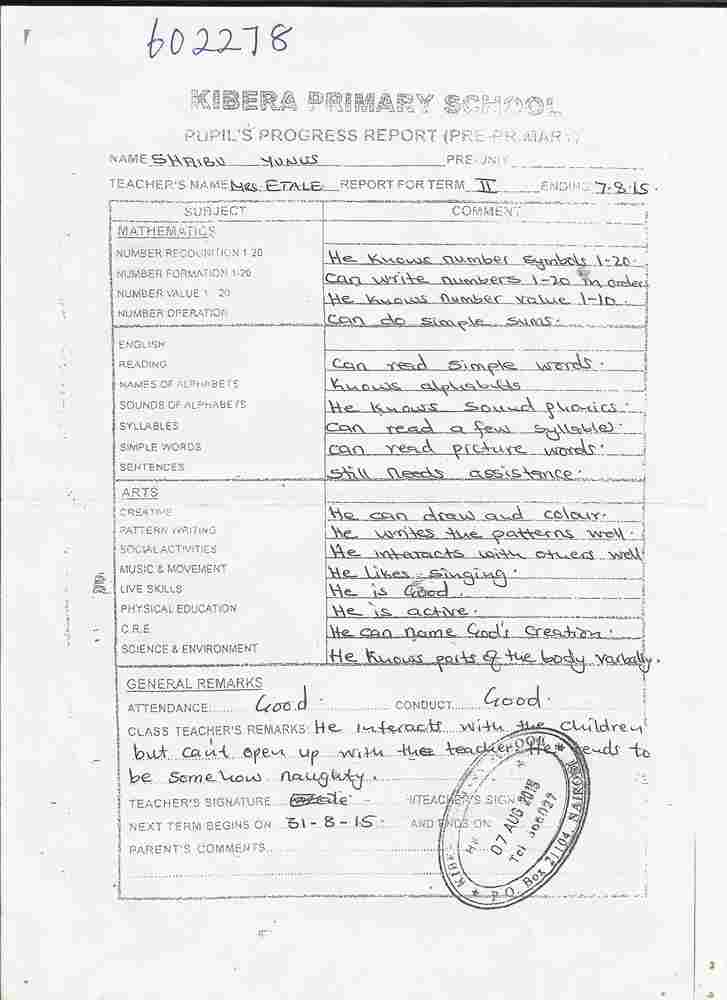 602278
KIBERA PRIMARY SCHOOL
PUPIL'S PROGRESS REPORT (PRE-PRIMARY)
NAME SHAIBU YUNUS PRE-UNIT
TEACHER'S NAME MRS. ETALE REPORT FOR TERM II ENDING 7-8-15.
SUBJECT COMMENT
MATHEMATICS
NUMBER RECOGNITION 1-20 He knows number symbols 1-20.
NUMBER FORMATION 1-20 Can write numbers 1-20 in order
NUMBER VALUE 1 - 20 He knows number value 1-10.
NUMBER OPERATION can do simple sums.
ENGLISH
READING Can read simple words.
NAMES OF ALPHABETS Knows alphabets
SOUNDS OF ALPHABETS He knows sound phonics.
SYLLABLES Can read a few syllables
SIMPLE WORDS can read picture words.
SENTENCES still needs assistance.
ARTS
CREATIVE He can draw and colour.
PATTERN WRITING He writes the patterns well.
SOCIAL ACTIVITIES He interacts with others well
MUSIC & MOVEMENT He likes singing.
LIVE SKILLS He is Good.
PHYSICAL EDUCATION He is active.
C.R.E He can name God's Creation.
SCIENCE & ENVIRONMENT He knows parts of the body varbally.
GENERAL REMARKS
ATTENDANCE...... Good. CONDUCT...... Good.
CLASS TEACHER'S REMARKS: He interacts with the children
but can't open up with thee teacher. He tends to
be somehow naughty.
TEACHER'S SIGNATURE H/TEACHER'S SIGN
NEXT TERM BEGINS ON 31-8-15 AND ENDS ON
PARENT'S COMMENTS
07 AUG 2015
P.O. Box 21104, NAIROBI